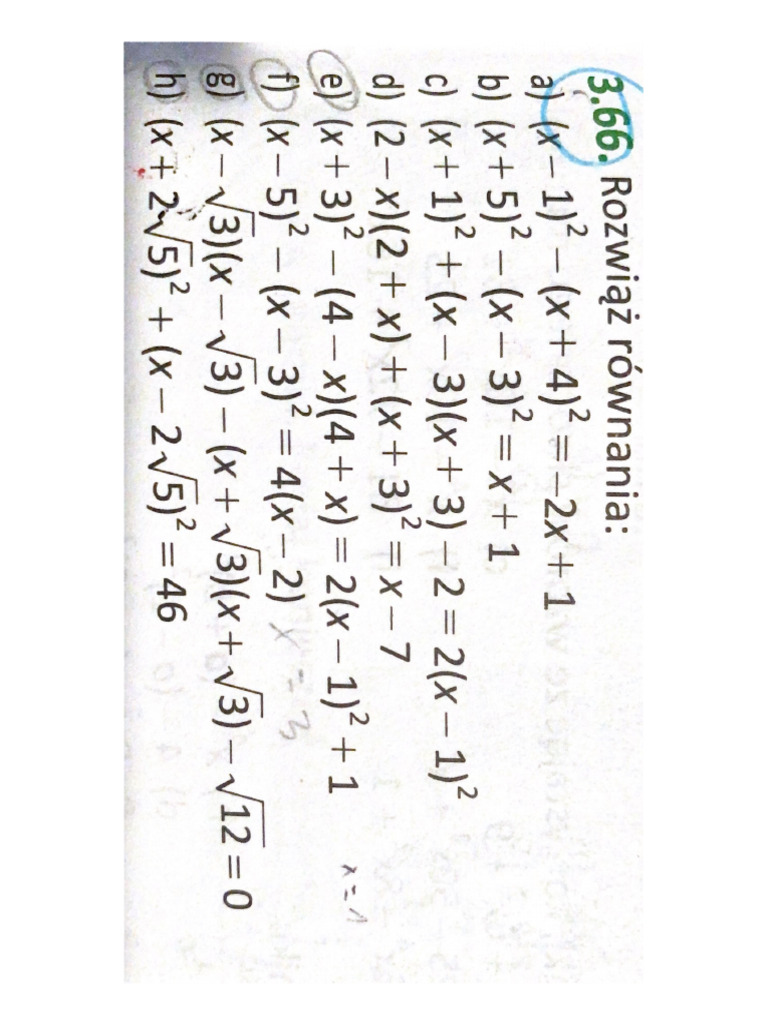 3.66. Rozwiąż równania:
a) (x − 1)² − (x + 4)² = −2x + 1
b) (x + 5)² − (x − 3)² = x + 1
c) (x + 1)² + (x − 3)(x + 3) − 2 = 2(x − 1)²
d) (2 − x)(2 + x) + (x + 3)² = x − 7
e) (x + 3)² − (4 − x)(4 + x) = 2(x − 1)² + 1 x = 1
f) (x − 5)² − (x − 3)² = 4(x − 2) x = 3
g) (x − √3)(x − √3) − (x + √3)(x + √3) − √12 = 0
h) (x + 2√5)² + (x − 2√5)² = 46